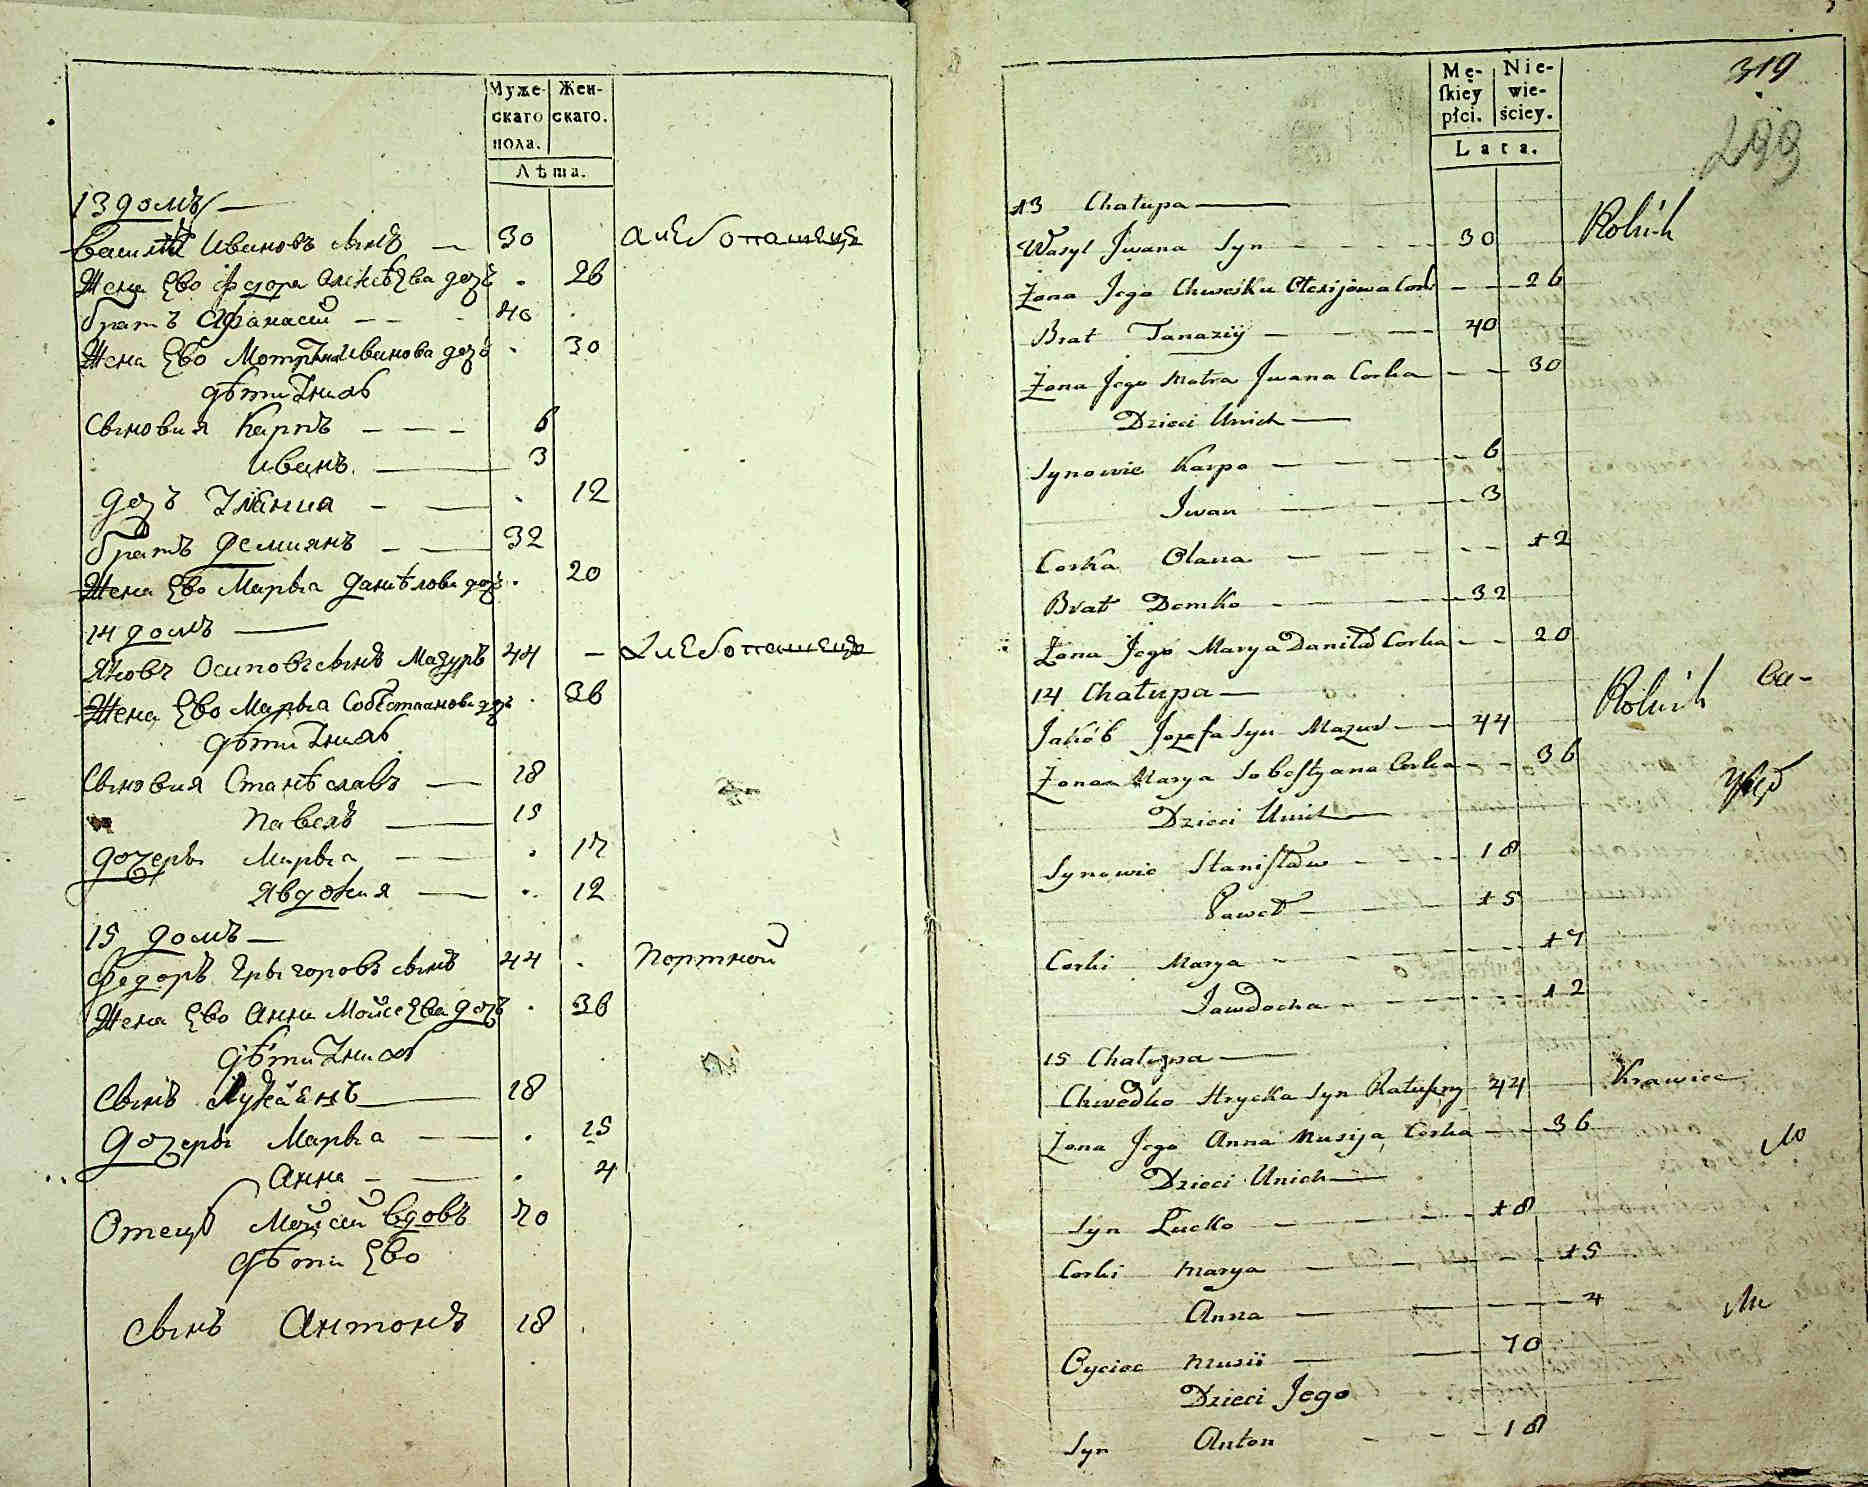 Муже- Жен-
скаго скаго.
пола.
Лѣта.
13 домъ
Василій Ивановъ сынъ 30 хлебопашецъ
Жена Ево Федора Алексѣева дочь 26
братъ Афанасий 40
Жена Ево Мотрына Иванова дочь 30
дѣти Ихъ
Сыновия Карпъ 6
Иванъ 3
дочь 12
братъ Демиянъ 32
Жена Ево Марыа Данѣлова дочь 20
14 домъ
Яковъ Осиповъ сынъ Мазуръ 44 хлебопашецъ
Жена Ево Марыа Собестианова дочь 36
дѣти
Сыновия Станѣславъ 18
Павелъ 15
дочеры Марыа 17
Явдокия 12
15 домъ
Федоръ Грыгоровъ сынъ 44 Портной
Жена Ево Анна Мойсеева дочъ 36
дѣти
Сынъ 18
Дочеры Марыа 15
Анна 4
Отецъ Мойсей вдовъ 70
дѣти Ево
сынъ Антонъ 18
319
299
Mę- Nie-
ſkiey wie-
płci. ściey.
Lata.
13 Chałupa
Wasyl Jwana Syn 30 Rolnik
Żona Jego Chweśka Ołexijowa Cork 26
Brat Tanaziy 40
Żona Jego Motra Jwana Corka 30
Dzieci Unich
Synowie Karpo 6
Jwan 3
Corka Olana 12
Brat Demko 32
Żona Jego Marya Daniła Corka 20
14 Chałupa
Rolnik
Jakób Jozefa Syn Mazur 44
Żona Marya Sobestyana Corka 36
Dzieci Unich
Synowie Stanisław 18
Paweł 15
Corki Marya 17
Jawdocha 12
15 Chałupa
Chwedko Hrycka Syn 44 Krawiec
Żona Jego Anna Musija Corka 36
Dzieci Unich
Syn Łucko 18
Corki Marya 15
Anna 4
Oyciec Musii 70
Dzieci Jego
Syn Anton 18